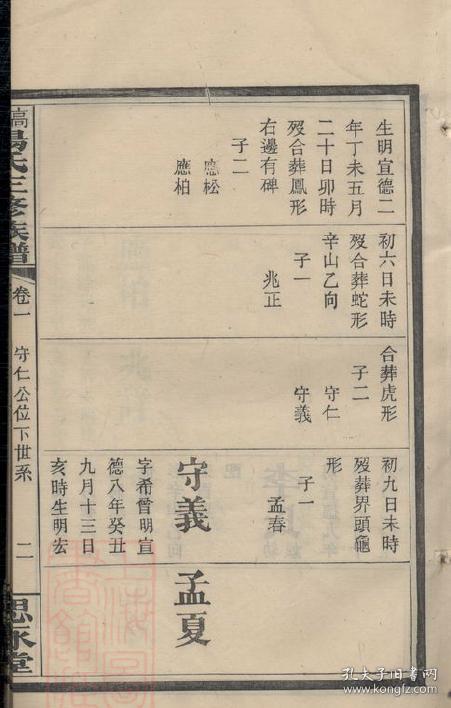 生明宣德二
年丁未五月
二十日卯時
歿合葬鳳形
右邊有碑
子二
應松
應柏
初六日未時
歿合葬蛇形
辛山乙向
子一
兆正
合葬虎形
子二
守仁
守義
初九日未時
歿葬界頭龜
形
子一
孟春
守義
字希曾明宣
德八年癸丑
九月十三日
亥時生明宏
孟夏
高湯氏三修族譜
卷一
守仁公位下世系
二
思永堂
孔夫子旧书网
book.kongfz.com